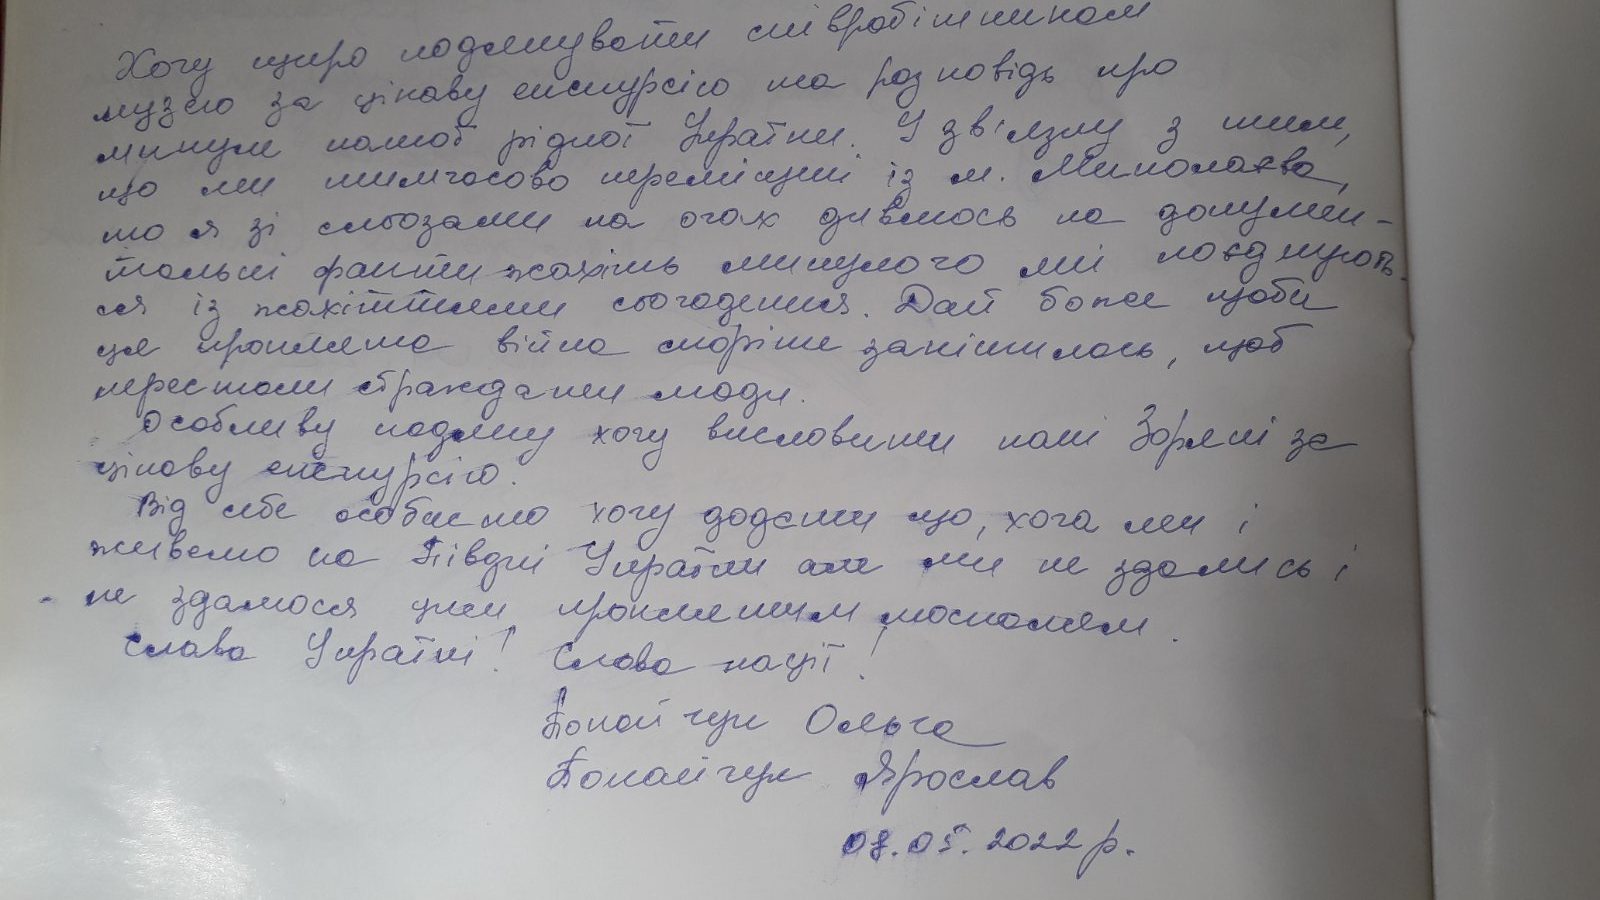 Хочу щиро подякувати співробітникам
музею за цікаву екскурсію та розповідь про
минуле нашої рідної України. У звʼязку з тим,
що ми тимчасово переміщені із м. Миколаєва,
то я зі сльозами на очах дивлюсь на докумен-
тальні факти жахіть минулого які поєднують-
ся із жахіттями сьогодення. Дай боже щоби
ця проклята війна скоріше закінчилась, щоб
перестали страждати люди.
Особливу подяку хочу висловити пані Зоряні за
цікаву екскурсію.
Від себе особисто хочу додати що, хоча ми і
живемо на Півдні України але ми не здались і
не здамося цим проклятим москалям.
Слава Україні! Слава нації!
Ольга
Ярослав
08.05.2022р.